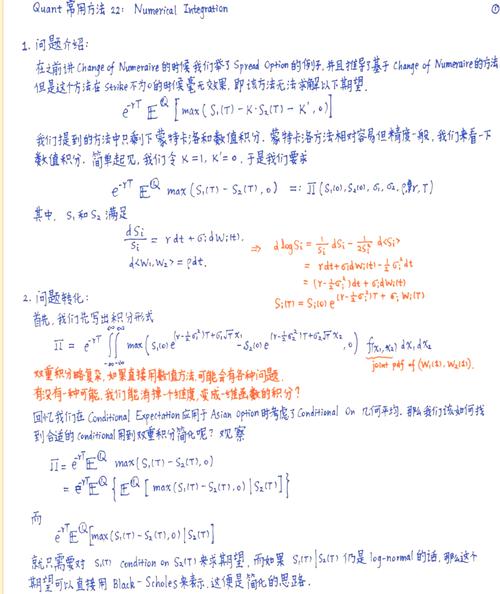 Quant 常用方法 22: Numerical Integration
①
1. 问题介绍:
在之前讲 Change of Numeraire 的时候我们举了 Spread Option 的例子, 并且推导了基于 Change of Numeraire 的方法
但是这个方法在 Strike 不为 0 的时候毫无效果, 即该方法无法求解以下期望.
e^{-rT} 𝔼^ℚ [max(S₁(T) - K·S₂(T) - K', 0)]
我们提到的方法中只剩下蒙特卡洛和数值积分. 蒙特卡洛方法相对容易但精度一般, 我们来看一下
数值积分. 简单起见, 我们令 K=1, K'=0, 于是我们要求
e^{-rT} 𝔼^ℚ max(S₁(T) - S₂(T), 0) =: Π(S₁(0), S₂(0), σ₁, σ₂, ρ, r, T)
其中, S₁ 和 S₂ 满足
dSᵢ/Sᵢ = r dt + σᵢ dWᵢ(t).
d<W₁, W₂> = ρdt.
⇒ d log Sᵢ = 1/Sᵢ dSᵢ - 1/2Sᵢ² d<Sᵢ>
= rdt + σᵢdWᵢ(t) - ½σᵢ²dt
= (r-½σᵢ²)dt + σᵢdWᵢ(t)
Sᵢ(T) = Sᵢ(0) e^{(r-½σᵢ²)T + σᵢWᵢ(T)}
2. 问题转化:
首先, 我们先写出积分形式
Π = e^{-rT} ∫_{-∞}^{∞}∫_{-∞}^{∞} max(S₁(0)e^{(r-½σ₁²)T+σ₁√T x₁} - S₂(0)e^{(r-½σ₂²)T+σ₂√T x₂}, 0) f(x₁,x₂) dx₁dx₂
joint pdf of (W₁(1), W₂(1)).
双重积分略复杂, 如果直接用数值方法, 可能会有各种问题.
有没有一种可能, 我们能消掉一个维度, 变成一维函数的积分?
回忆我们在 Conditional Expectation 应用于 Asian Option 时考虑了 Conditional on 几何平均. 那么我们该如何找
到合适的 conditional 用到双重积分简化呢? 观察
Π = e^{-rT} 𝔼^ℚ max(S₁(T) - S₂(T), 0)
= e^{-rT} 𝔼^ℚ {𝔼^ℚ [max(S₁(T) - S₂(T), 0) | S₂(T)]}
而
e^{-rT} 𝔼^ℚ [max(S₁(T) - S₂(T), 0) | S₂(T)]
就只需要对 S₁(T) condition on S₂(T) 来求期望, 而如果 S₁(T)|S₂(T) 仍是 log-normal 的话, 那么这个
期望可以直接用 Black-Scholes 来表示. 这便是简化的思路.